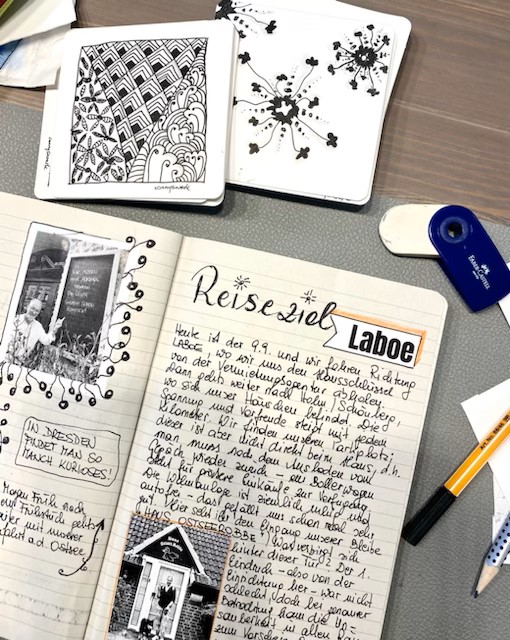 IN DRESDEN
FINDET MAN SO
MANCH KURIOSES!
Morgen Früh noch
ein Frühstück geht's
weiter mit unserer
Fahrt a.d. Ostsee
Reiseziel
Laboe
Heute ist der 9.9. und wir fahren Richtung
LABOE, wo wir uns den Hausschlüssel
von der Vermietungsagentur abholen.
Dann geht's weiter nach Holm / Schönberg,
wo sich unser Häuschen befindet. Die
Spannung und Vorfreude steigt mit jedem
Kilometer. Wir finden unseren Parkplatz,
dieser ist aber nicht direkt beim Haus, d.h.
man muss nach dem Ausladen vom
Gepäck wieder zurück - ein Bollerwagen
steht für größere Einkäufe zur Verfügung.
Die Wohnanlage ist ziemlich ruhig und
autofrei - das gefällt uns schon mal sehr
gut. Hier seht ihr den Eingang unserer Bleibe
(HAUS OSTSEEROBBE) Was verbirgt sich
hinter dieser Tür? Der 1.
Eindruck - also von der
Einrichtung her - war nicht
schlecht, doch bei genauer
Betrachtung kam die Un-
sauberkeit in allen
zum Vorschein
FABER-CASTELL